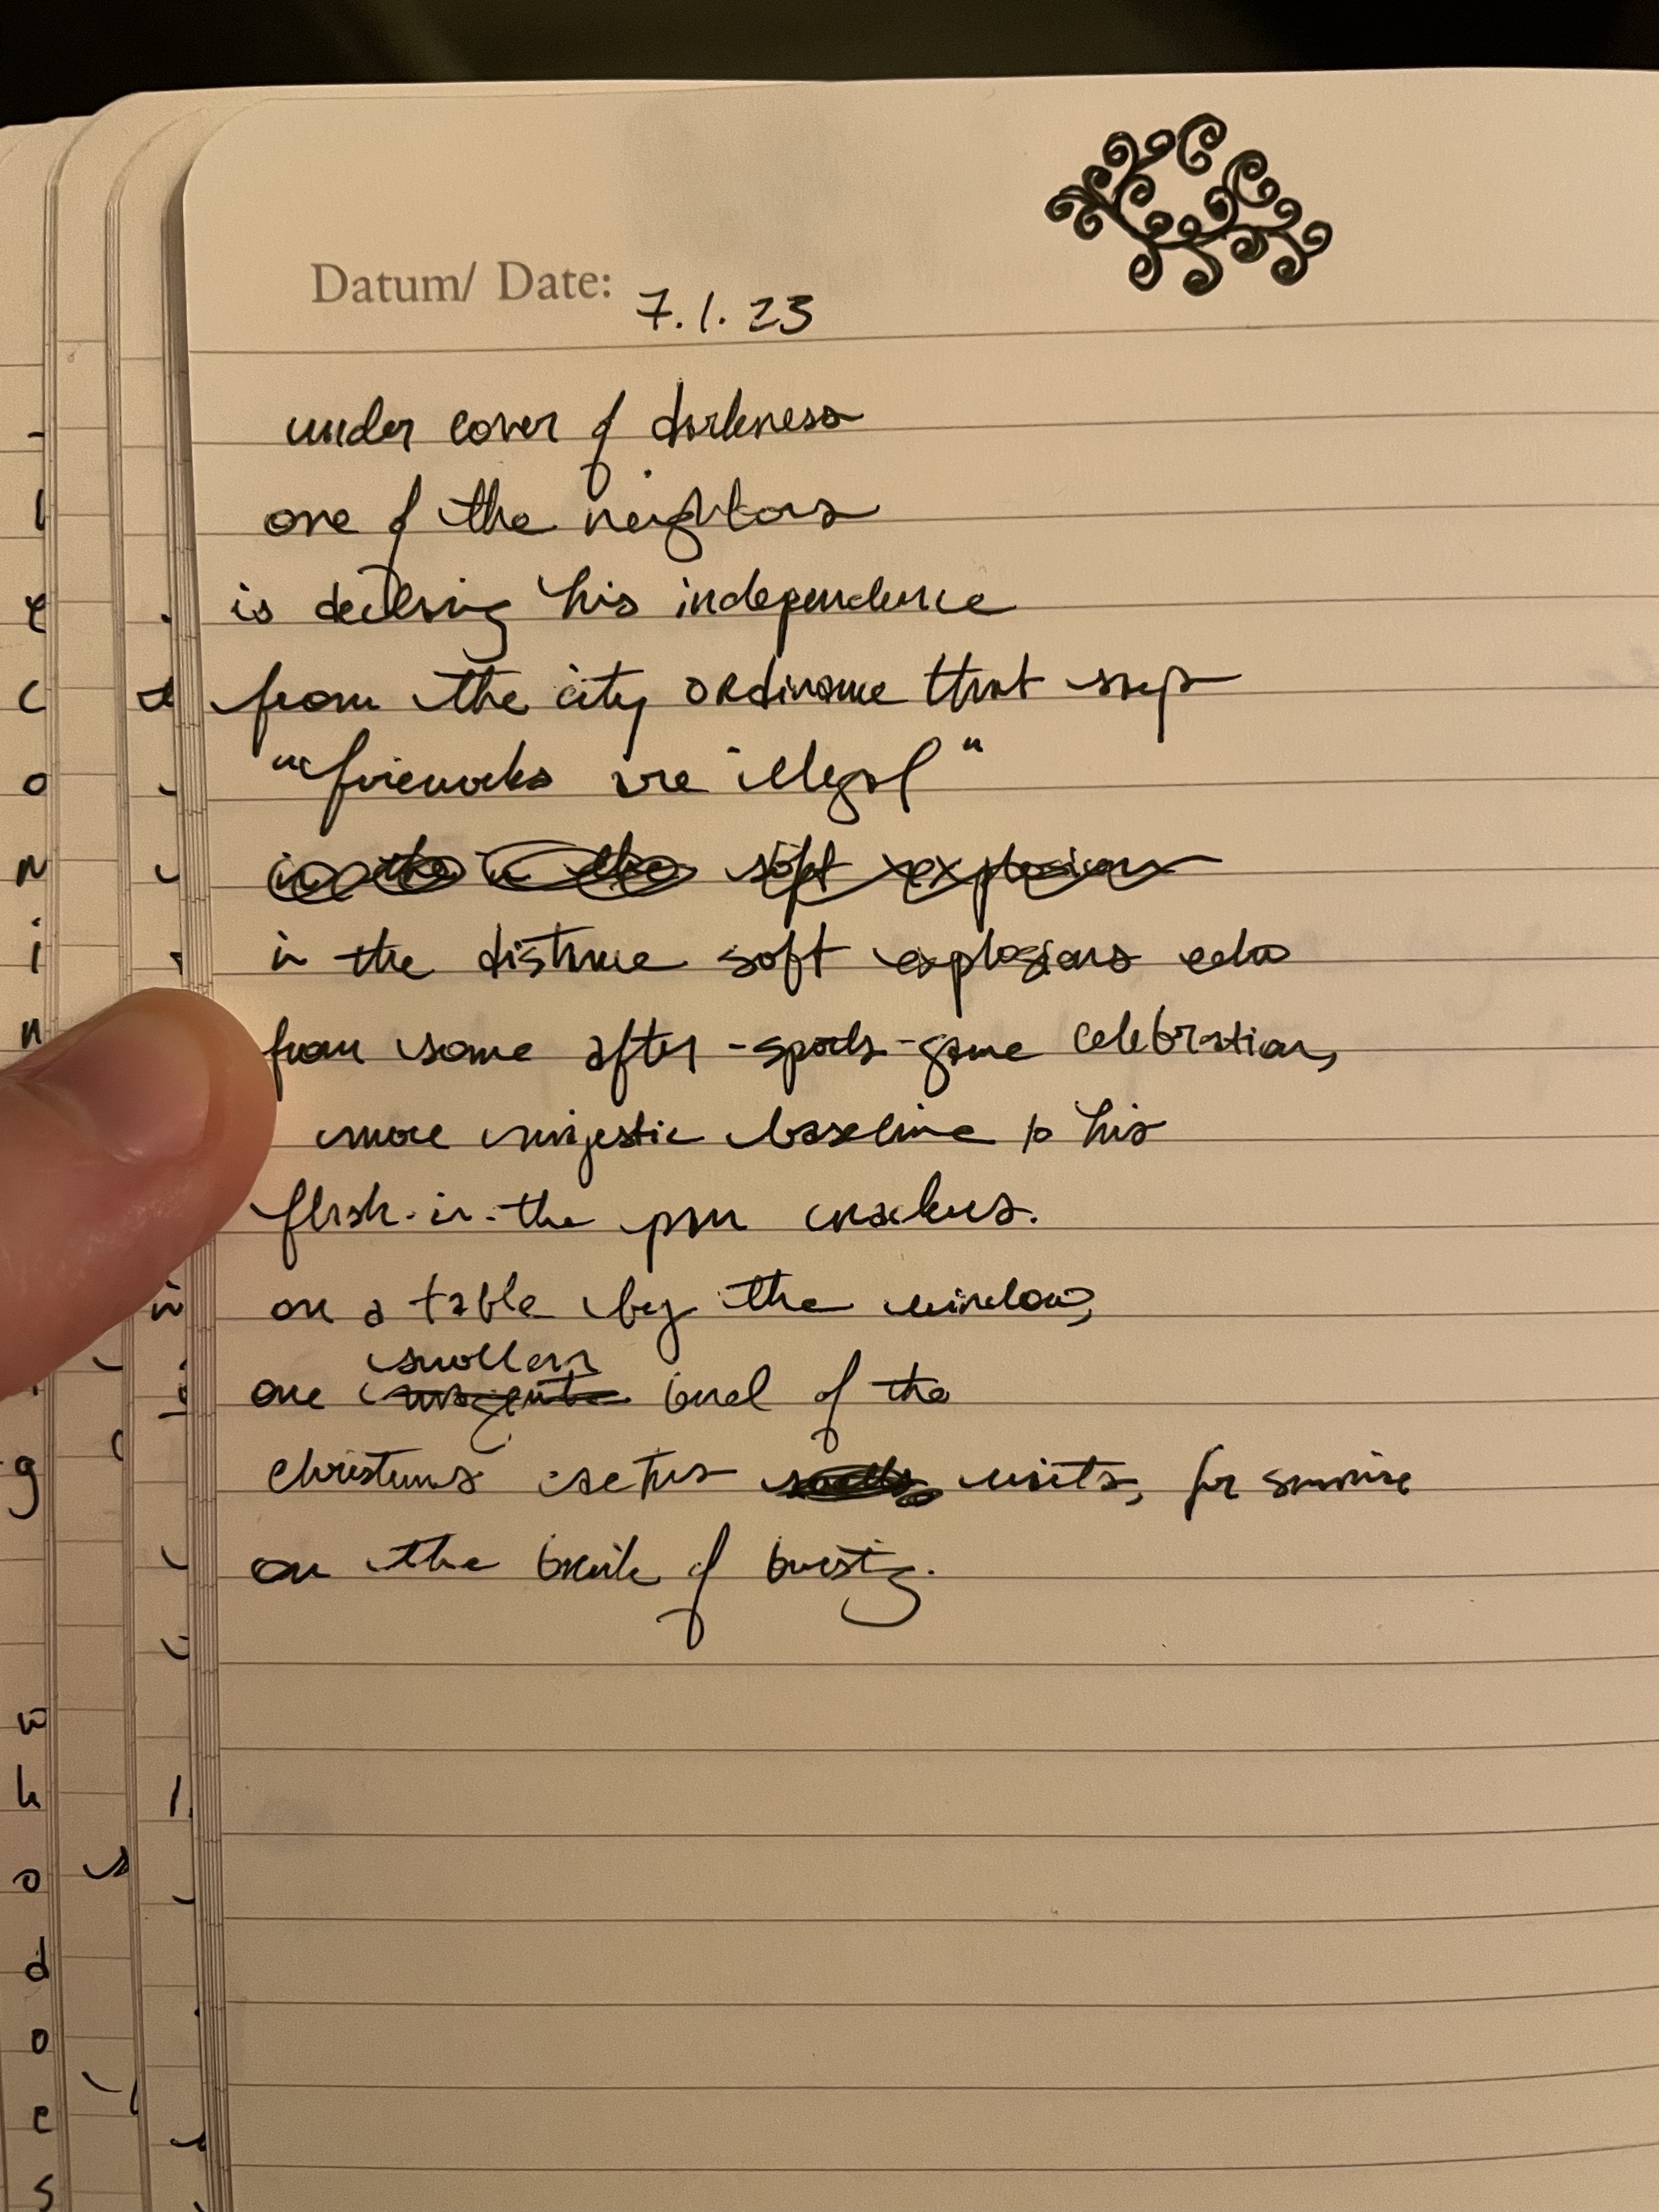 Datum/ Date: 7.1.23
under cover of darkness
one of the neighbors
is declaring his independence
from the city ordinance that says
"fireworks are illegal"
in the in the soft explosions
in the distance soft explosions echo
from some after-sports-game celebration,
more majestic baseline to his
flash-in-the pan crackers.
on a table by the window,
swollen
one bud of the
christmas cactus waits, for sunrise
on the brink of bursting.